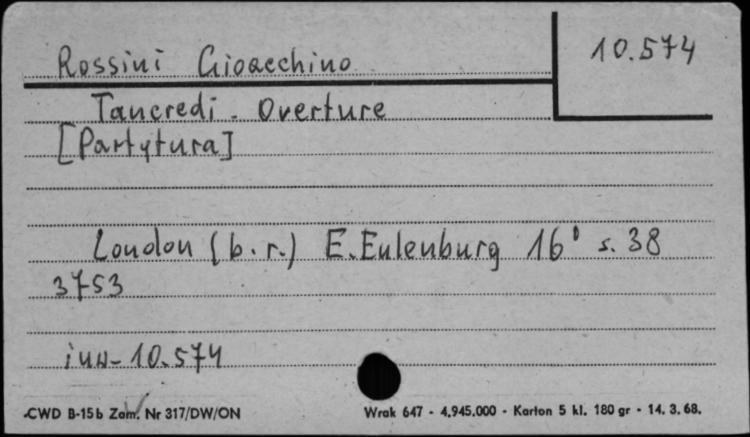 10.574
Rossini Gioacchino
Tancredi. Overture
[Partytura]
London (b.r.) E. Eulenburg 16° s. 38
3753
inw. 10.574
CWD B-15b Zam. Nr 317/DW/ON Wrak 647 - 4.945.000 - Karton 5 kl. 180 gr - 14. 3. 68.